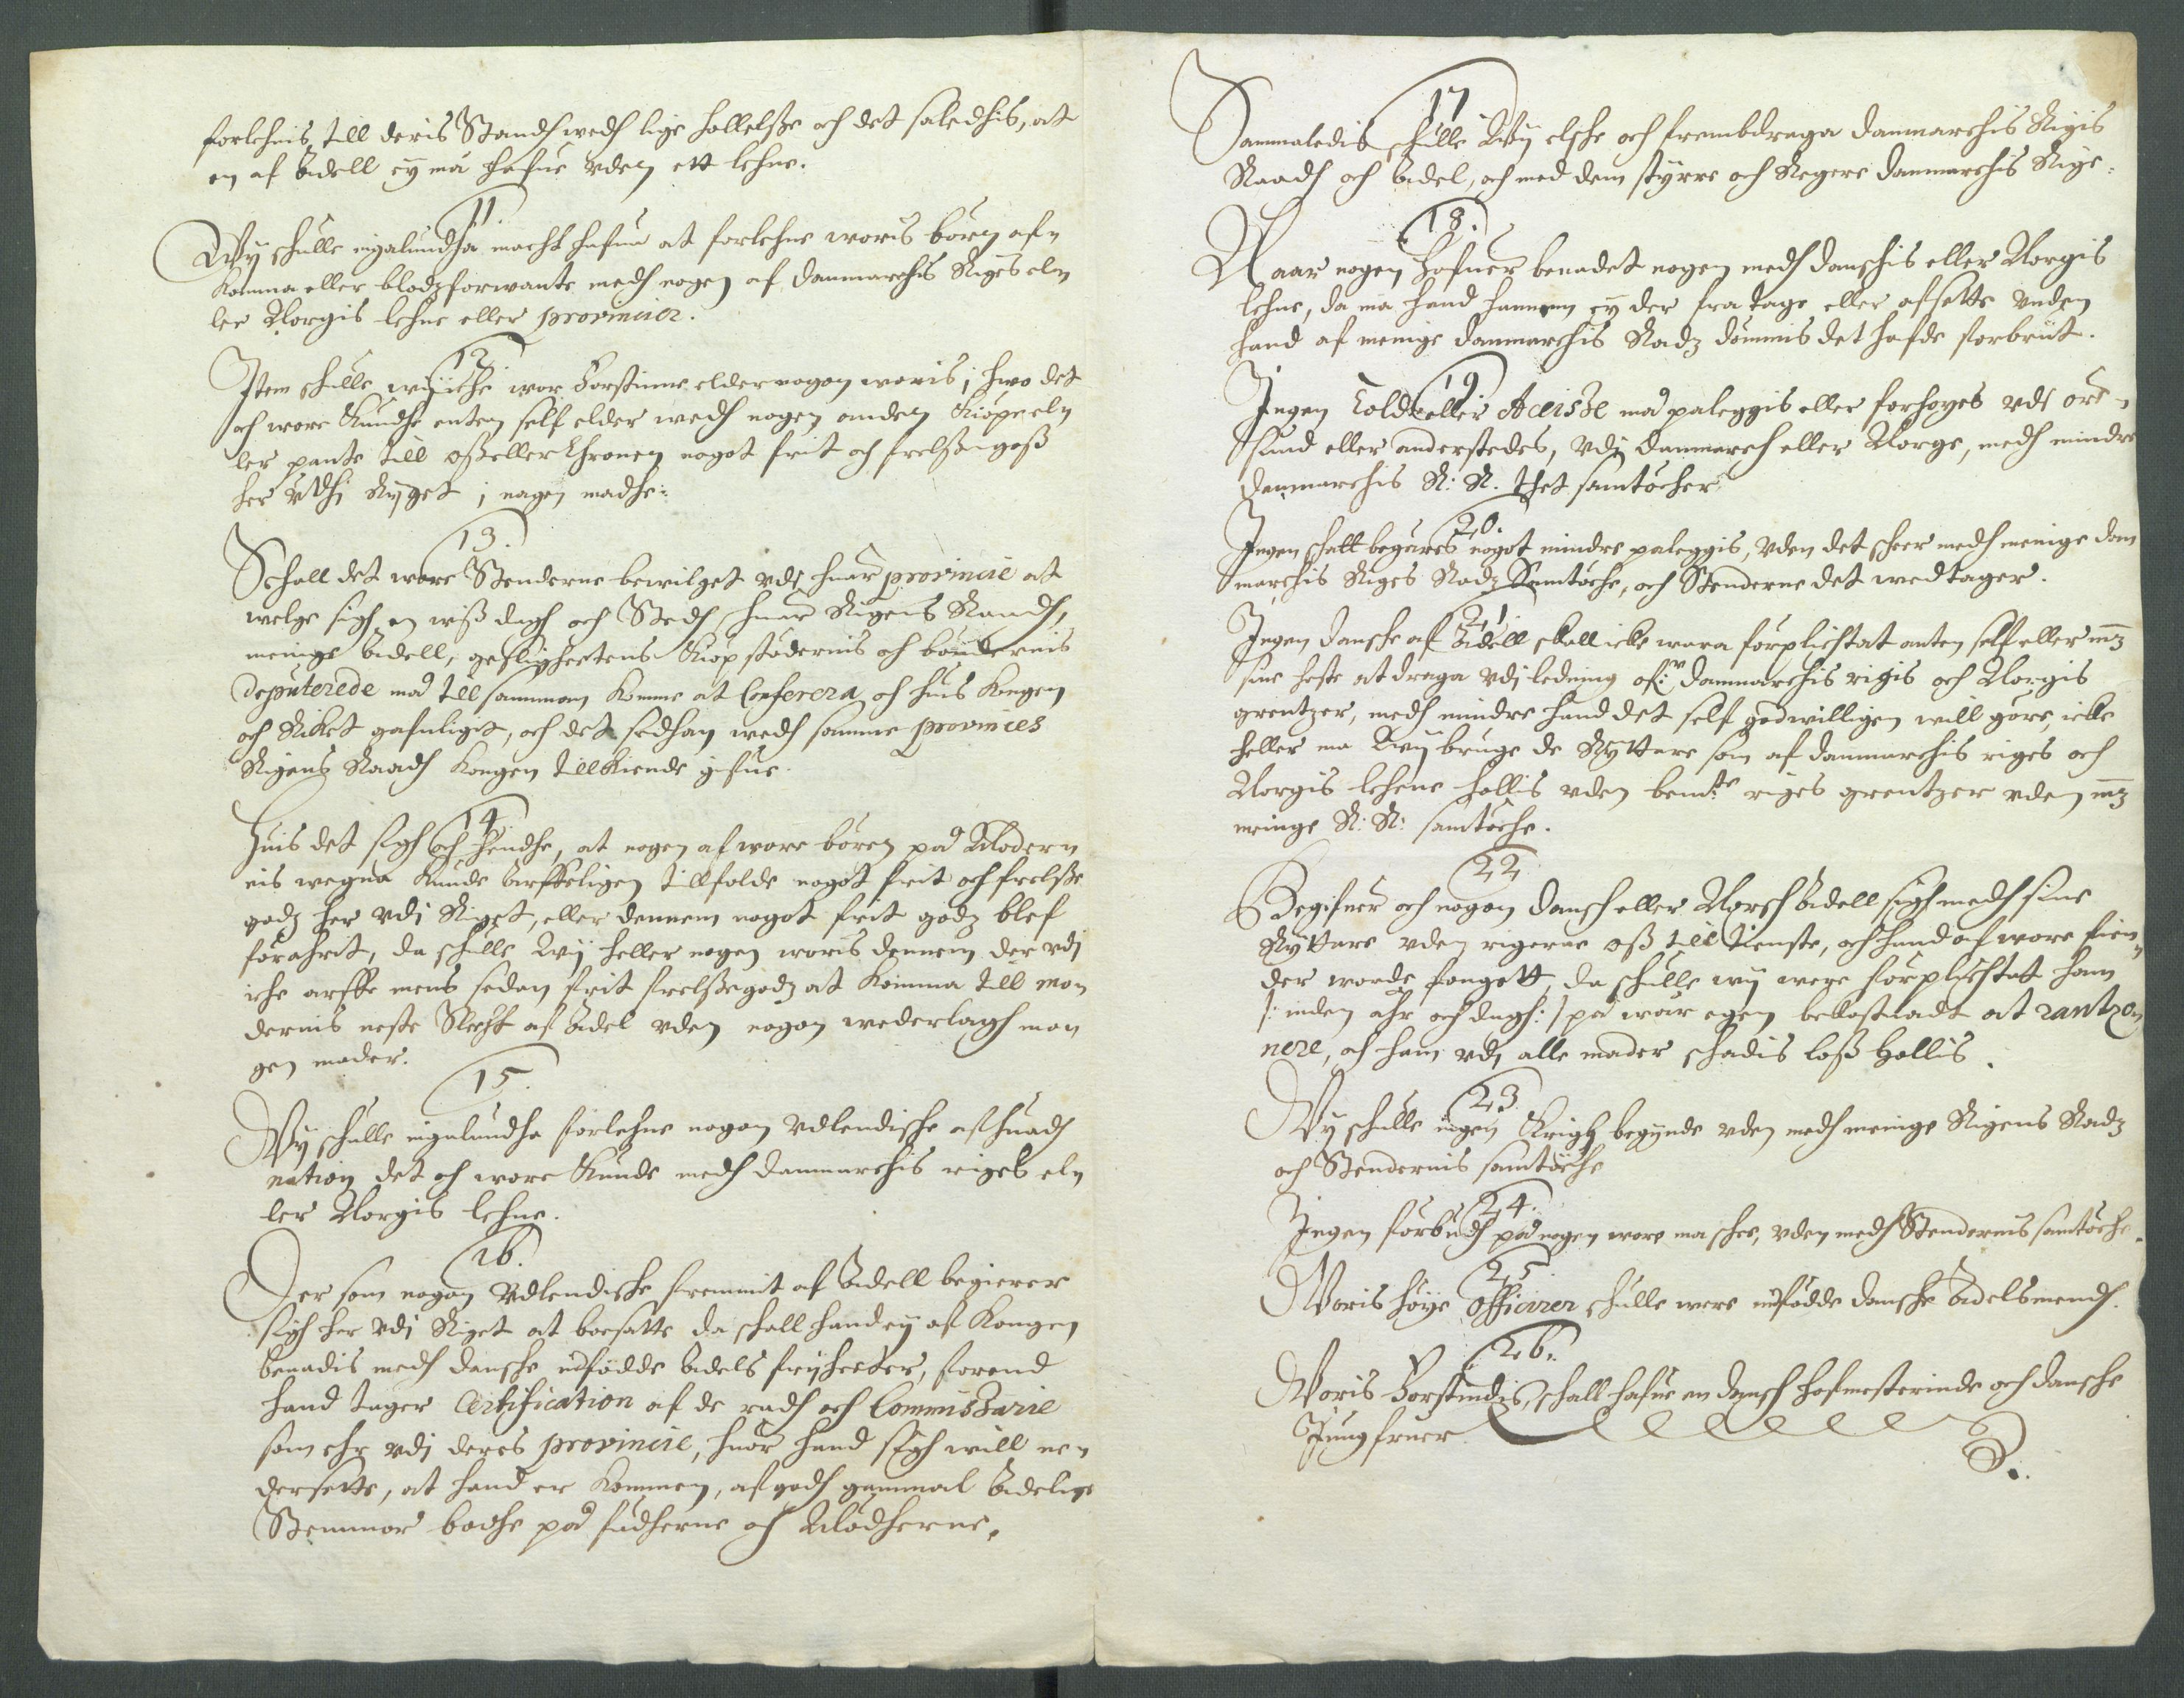 forlehnis till deris Standh wedh lige hollelsze och det saledhis, at
en af Adell ey må hafue vden ett lehne.
11.
Wij schulle ingalundha macht hafue at forlehne woris börn af-
komma eller blodzforwante medh nogen af Danmarchis Riges el-
ler Norgis lehne eller provincier.
12
Item schulle wij iche wor Forstinne elder nogon woris, i hwo det
och wore kundhe enten self elder wedh nogen anden kiöpe el-
ler pante till osz eller Chronen nogot frit och frelsze gosz
her vdhi Ryget i nogen madhe.
13.
Schall det wore Stenderne bewilget vdi huar provincie at
welge sigh en wisz dagh och Stedh, huar Rigens Raadh,
menige Adell, gestligheetens kiöpstedernis och böndernis
deputerede må till samman komme at Conferera, och huis kongen
och Riket gafnligit, och det sedhan wedh samme provincies
Rigens Raadh kongen till kiende gifue.
14.
Huis det sigh och hendhe, at nogen af wore börn på Modern-
nis wegna kunde Arffteligen tillfalde nogot frit och frelsze
godz her vdi Riget, eller dennem nogot frit godz blef
förährit, da schulle Wij heller nogen woris dennem der vdi
iche arffve mens sedan frit frelszegodz at komma till mo-
dernis neste Slecht af Adel vden nogon wederlagh i no-
gen måder.
15.
Wij schulle ingalundha förlehne nogon Vdlendische af huadh
nation det och wore kunde medh Danmarchis riges el-
ler Norgis lehne.
16.
Der som nogon Vdlendische fremmit af Adell begierer
sigh her vdi Riget at boesatte da schall hand ey af Kongen
benadis medh dansche indfödde Adels frijheeter, förend
hand tager Certification af de radh och Commissarie
som ehr vdi deres provincie, huor hand sigh will ne-
dersette, at hand er kommen, af godh gammal Adelige
Stemmor bodhe på fädherne och Mödherne.
17
Sammaledis schulle Wij elsche och frembdraga Danmarchis Rigis
Raadh och Adel, och med dem styrre och Regere Danmarchis Rige.
18.
Naar nogen Hafuer benadet nogen medh Danschis eller Norgis
lehne, da må hand hannem ey der fra tage eller afsette vnden
hand af menige Danmarchis Radz dömmis det hafde forbrüt.
19
Ingen Told eller Accisze må paleggis eller forhoyes vdi öre-
sund eller anderstedes, vdi Danmarch eller Norge, medh mindre
Danmarchis R: R. thet samtöcher
20.
Ingen schatt begäres nogot mindre paleggis, vden det scheer medh menige Dan
marchis Riges Radz Samtöche, och Stenderne det wedtager.
21
Ingen Dansche af Adell skall icke wara forplichtat anten self eller mz
sine heste at draga vdi ledning ofr: Danmarchis rigis och Norgis
grentzer, medh mindre hand det self godwilligen will göre, icke
heller ma Wij bruge de Ryttare som af Danmarchis riges och
Norgis lehene hollis vden bemte: riges grentzer vden mz
meinge R: R: samtöche.
22
Begifuer och nogon Dansch eller Norsch Adell sigh medh sine
Ryttare vden rigerne osz till tieneste, och hand af wore fien-
der worde fangett, da schulle wij were förplichtat ham
/: inden åhr och dagh: / på wår egen bekostnadt at rantzon
nere, och ham vdi alle måder schadis losz Hollis.
23
Wij schulle ingen Krigh begynde vden medh menige Rigens Radz
och Stendernis samtöche
24.
Ingen förbudh på nogen ware ma schee, vden medh Stendernis samtöche.
25
Woris höije Officirer schulle were indfödde Dansche Adelsmendh.
26.
Woris Forstindis, schall hafue en Dansch Hofmesterinde och Dansche
Jungfruer